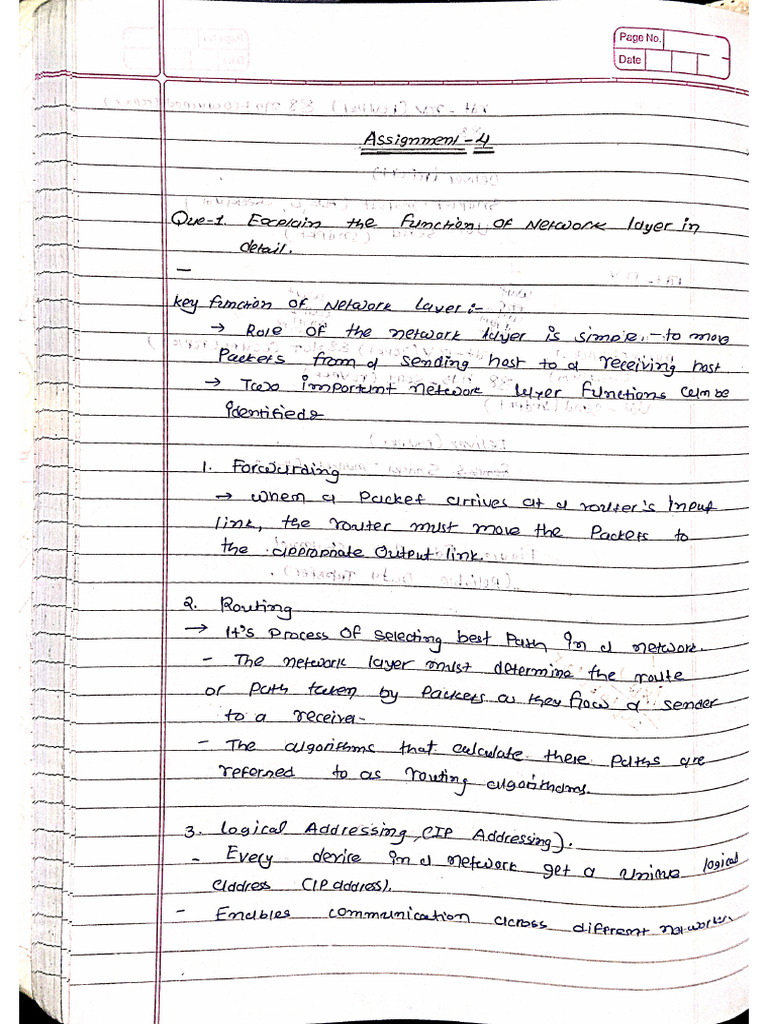 Page No.
Date
Assignment - 4
Que-1. Explain the function of Network layer in
detail.
—
Key function of Network layer :-
→ Role of the network layer is simple - to move
Packets from a sending host to a receiving host.
→ Two important network layer functions can be
identified :
1. Forwarding
→ When a Packet arrives at a router's Input
link, the router must move the Packets to
the appropriate Output link.
2. Routing
→ It's Process of selecting best Path in a network.
- The network layer must determine the route
or Path taken by Packets as they flow a sender
to a receiver-
- The algorithms that calculate these Paths are
referred to as routing algorithms.
3. Logical Addressing (IP Addressing).
- Every device in a network get a unique logical
address (IP address).
- Enables communication across different networks.